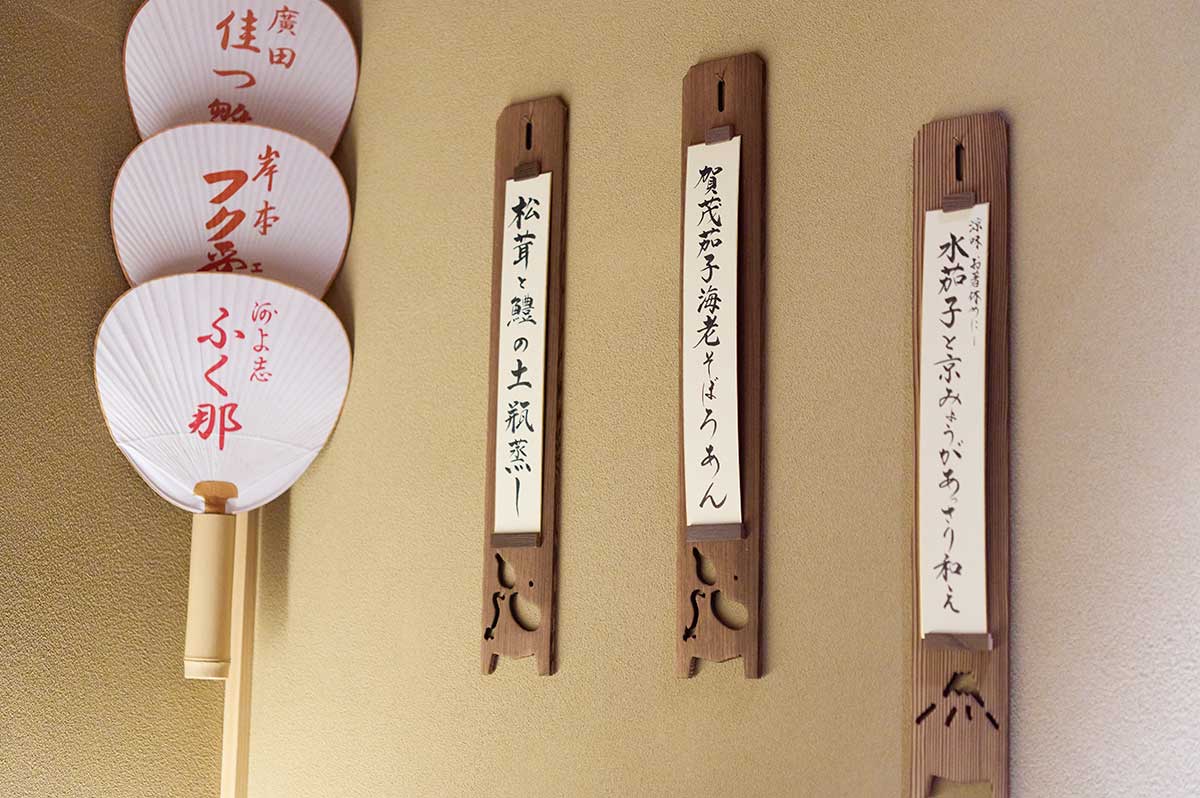 廣田
佳つ
岸本
フク
河よ志
ふく那
松茸と鱧の土瓶蒸し
賀茂茄子海老そぼろあん
涼味・お箸休めに
水茄子と京みょうがあっさり和え